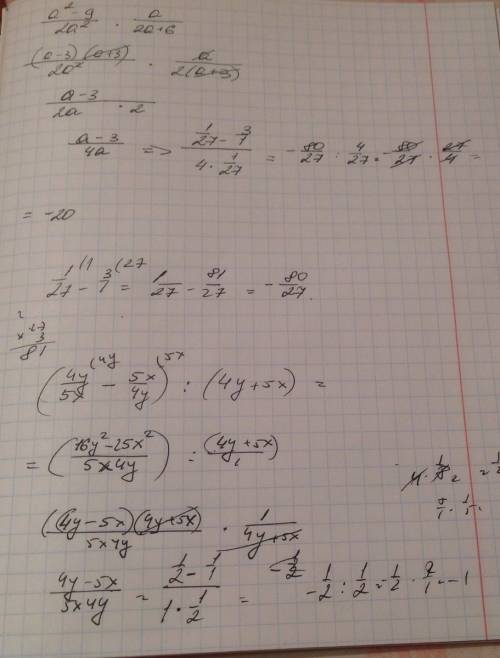 a² - 9 / 2a² · a / 2a+6
(a-3)(a+3) / 2a² · a / 2(a+3)
a-3 / 2a · 2
a-3 / 4a => 1/27 - 3/1 / 4 · 1/27 = - 80/27 : 4/27 = - 80/27 · 27/4 =
= -20
1/27 (1 - 3/1 (27 = 1/27 - 81/27 = - 80/27.
27 × 3 81
(4y/5x (4y - 5x/4y (5x) : (4y+5x) =
= (16y² - 25x² / 5x4y) : (4y+5x) / 1
(4y-5x)(4y+5x) / 5x4y · 1 / 4y+5x
4y-5x / 5x4y = 1/2 - 1/1 / 1 · 1/2 = -1/2 - 1/2 : 1/2 = -1/2 · 2/1 = -1